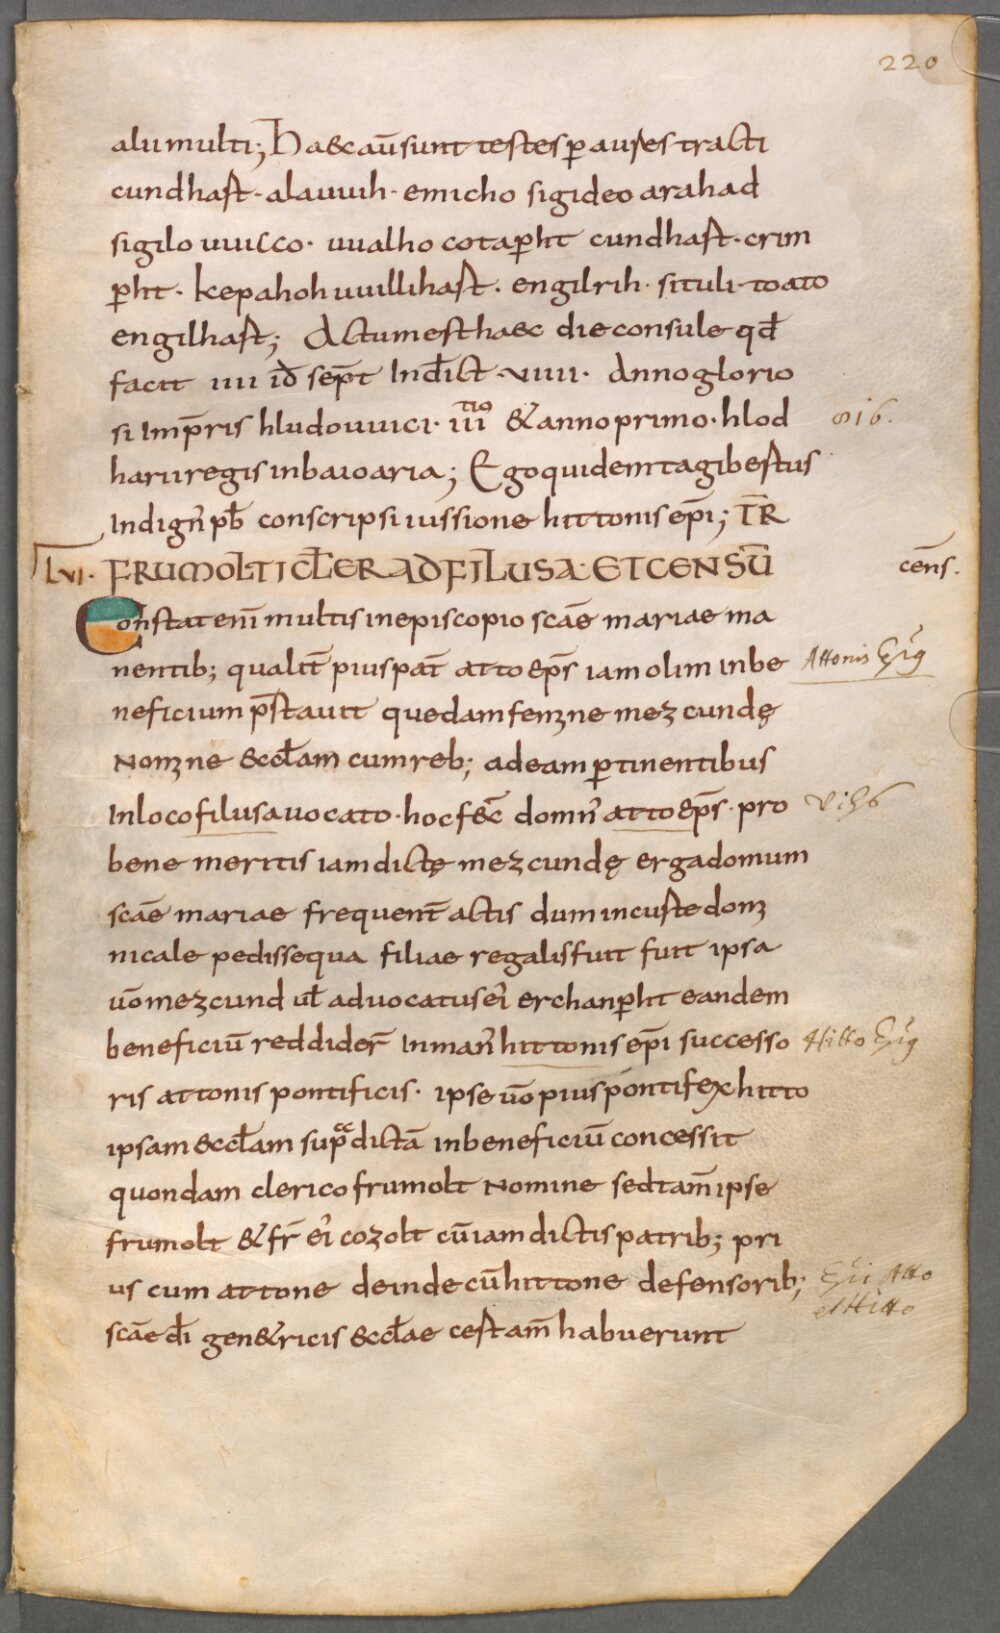 220
alii multi; Haec aū sunt testes p̄ aures tracti
cundhast · alauuih · emicho sigideo arahad
sigilo uuicco · uualho cotap̄ht cundhast · crim
p̄ht · kepahoh uuillihast · engilrih · situli · toato
engilhast; Actum est haec die consule qđ
facit iiii iđ sep̄t Inđict · viiii · Anno glorio
si Imp̄ris hludouuici · iii tio & anno primo · hlod
816.
harii regis in baioaria; Ego quidem tagibestus
Indign̄ pb̄ conscripsi iussione hittonis ep̄i; T̄R
LVI. FRUMOLTI CL̄ER AD FILUSA · ET CENSŪ
cēns.
Constat enī multis in episcopio scāe mariae ma
nentib; qualit̄ pius pat̄ atto ep̄s iam olim in be
Attonis
neficium p̄stauit quedam feminę mezcundę
Nomine &cl̄am cum reb; ad eam p̄tinentibus
In loco filusa uocato · hoc fec̄ domn̄ atto ep̄s · pro
bene meritis iamdictę mezcundę erga domum
scāe mariae frequent̄ actis dum in custe domi
nicale pedissequa filiae regalis fuit fuit ipsa
uō mezcund ul̄ aduocatus ei erchanp̄ht eandem
beneficiū reddider̄ In man̄ hittonis ep̄i successo
Hitto
ris attonis pontificis · ipse uō pius pontifex hitto
ipsam &cl̄am sup̄dictā in beneficiū concessit
quondam clerico frumolt Nomine sed tam̄ ipse
frumolt & fr̄ ei cozolt cū iamdictis patrib; pri
us cum attone deinde cū hittone defensorib;
Atto
et Hitto
scāe dī gen&ricis &cl̄ae cestam̄ habuerunt